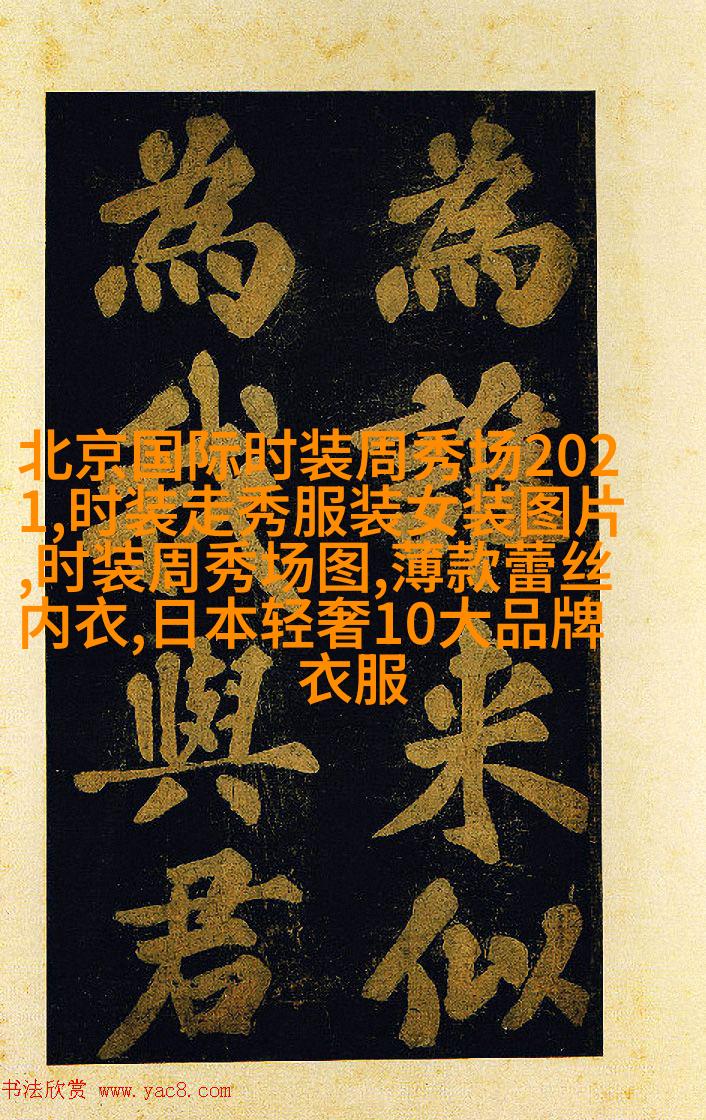 北京国际时装周秀场202
1,时装走秀服装女装图片
,时装周秀场图,薄款蕾丝
内衣,日本轻奢10大品牌
衣服
為誰来似
為與君
书法欣赏 www.yac8.com